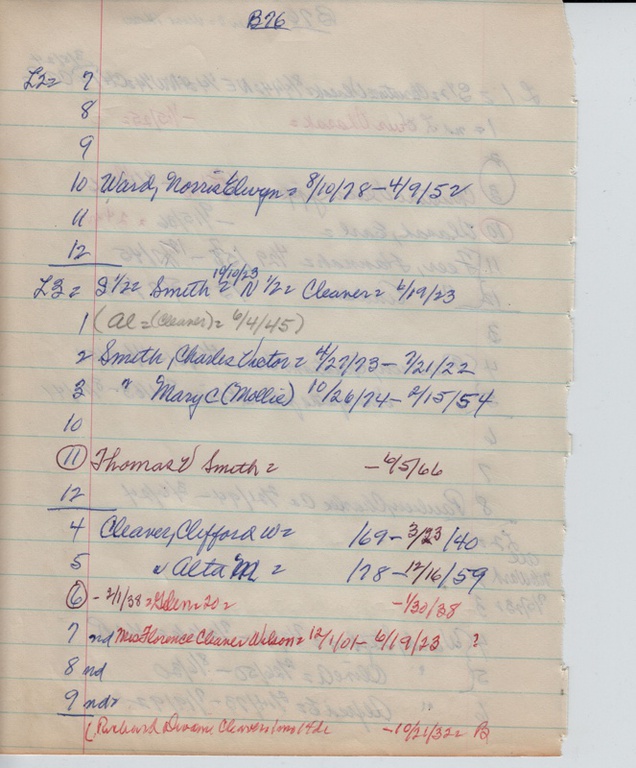 B76
L2= 7
8
9
10 Ward, Norris Elwyn = 8/10/78-4/9/52
11
12
10/10/23
L3= S 1/2= Smith = N 1/2= Cleaver= 6/19/23
1 (Al=(Cleaver)= 6/4/45)
2 Smith, Charles Victor= 4/27/73- 7/21/22
3 " Mary C (Mollie) 10/26/74- 2/15/54
10
11 Thomas V Smith= -6/5/66
12
4 Cleaver, Clifford W= /69-3/23/40
5 " Alta M = /78-12/16/59
6 - 2/1/38= =20= -1/30/38
7 nd Mrs Florence Cleaver Wilson= 12/1/01- 6/19/23 ?
8 nd
9 nd=
( Richard Cleaver -10/21/32= B